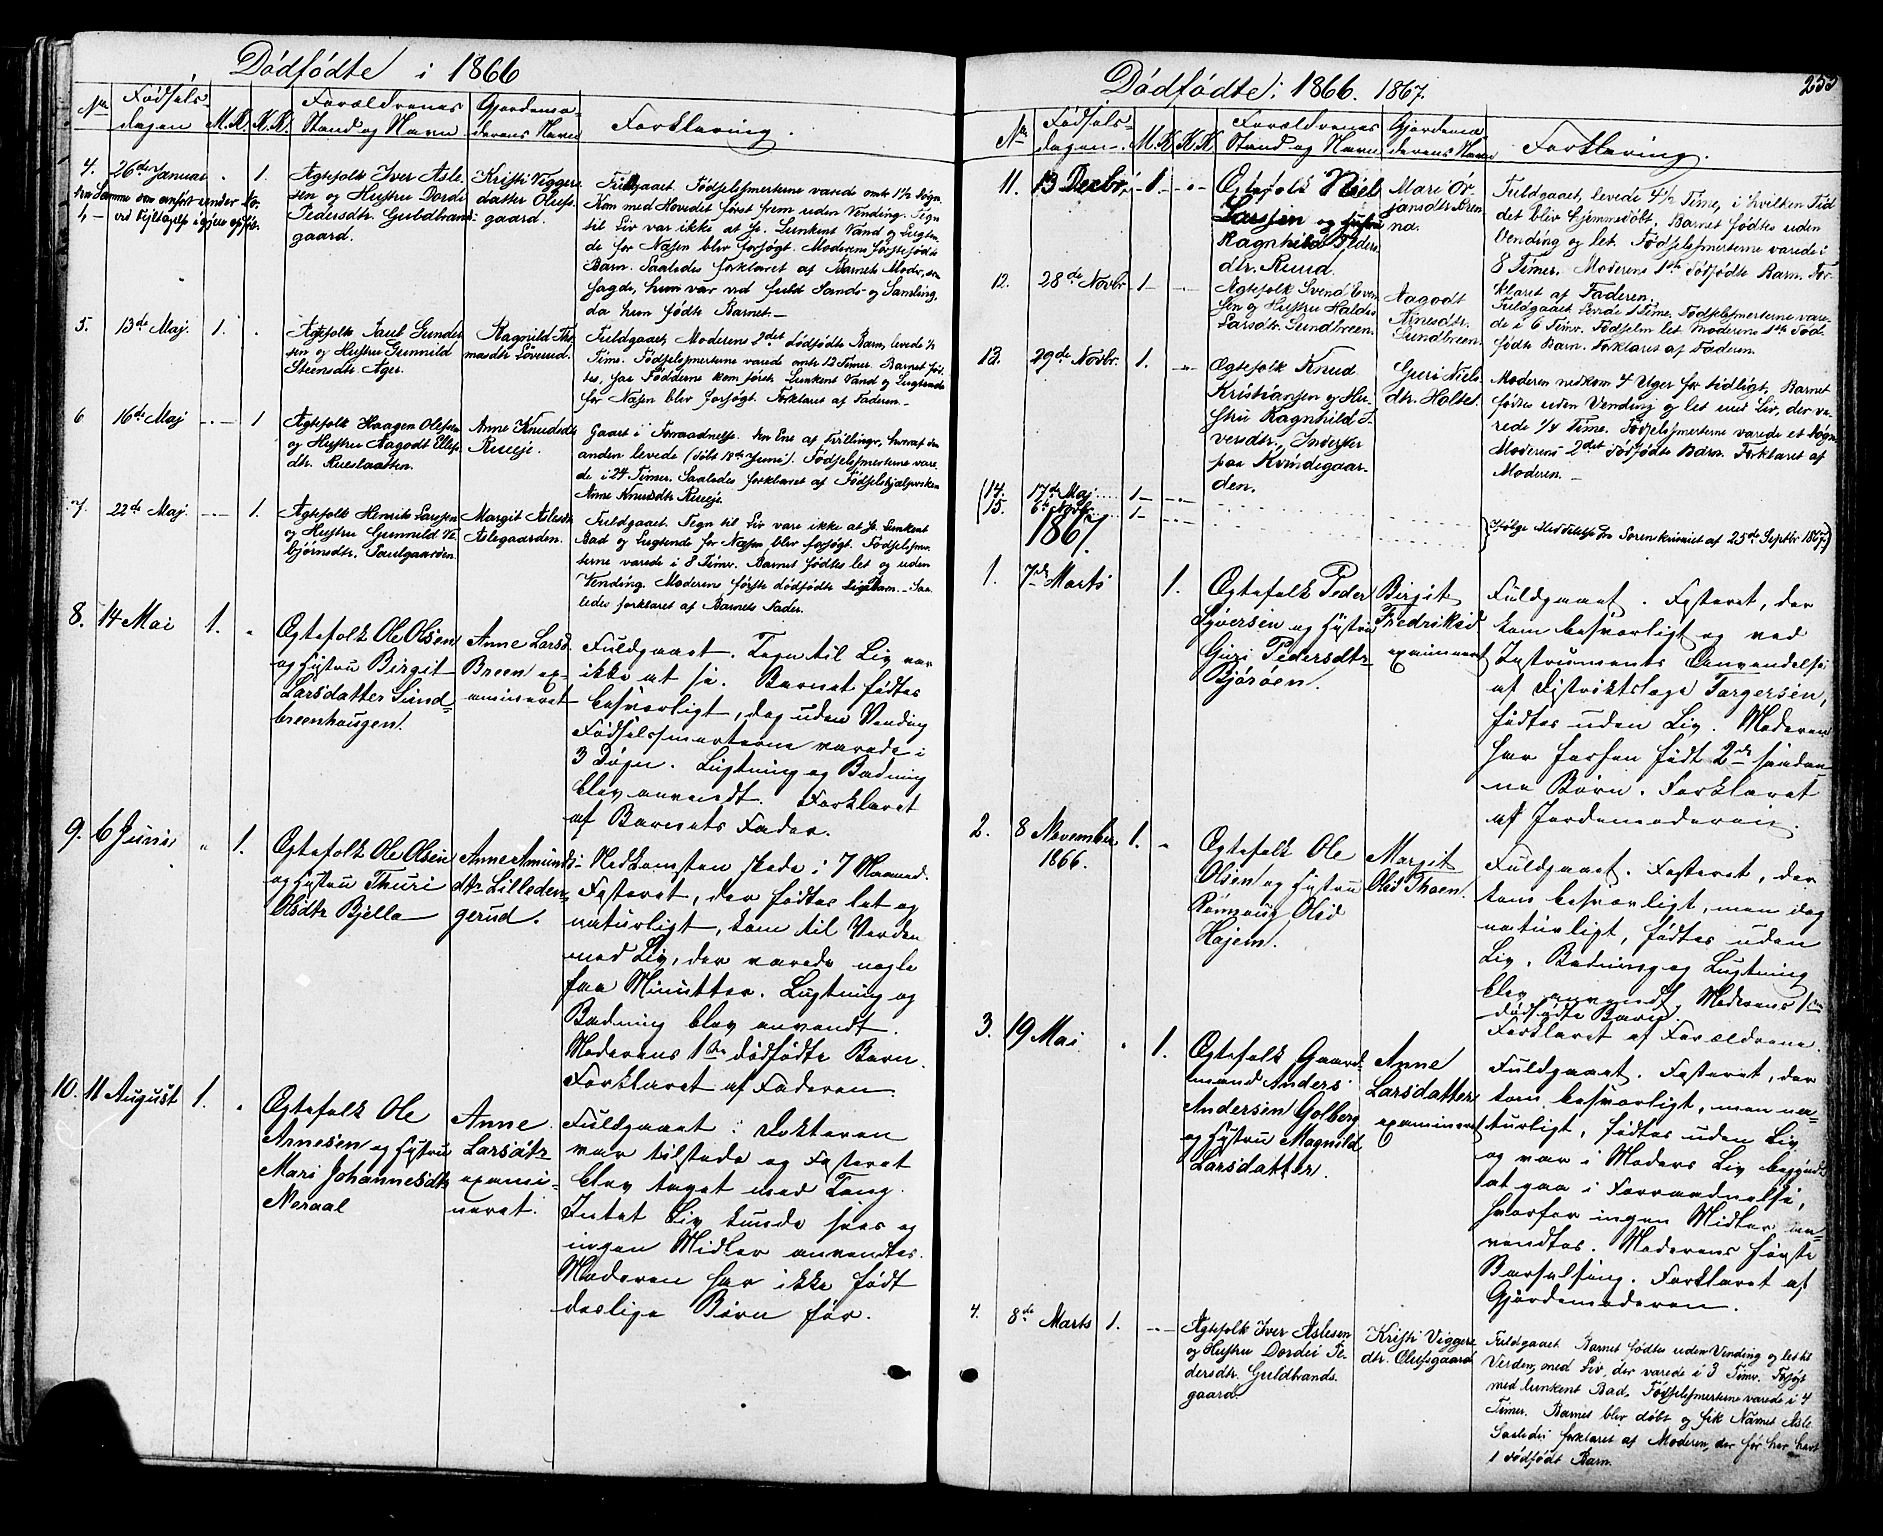 Dödfödte i 1866
No
Fødsels-
dagen
M.K.
M.K.
Forældrenes
Stand og Navn
Gjordemo-
derens Navn
Forklaring.
4.
26de Januar
1.
Ægtefolk Iver Asle-
sen og Hustru Dorde
Pedersdtr. Guldbrands-
gaard.
Kristi Viggers-
datter Olufs-
gaard.
Fuldgaaet. Fødselssmerterne varede omtr. 1½ Døgn.
Kom med Hovedet først frem uden Vending. Tegn
til Liv var ikke at se. Lunkent Vand og Lugten-
de for Næsen blev forsøgt. Moderens første dødfødte
Barn. Saaledes forklaret af Barnets Moder, som
sagde, hun var ved fuld Sands og Samling,
da hun fødte Barnet.—
5.
13de Maj.
1.
Ægtefolk Paul Gunder-
sen og Hustru Gunnild
Steensdtr. Ager.
Ragnild Tho-
masdtr Løverud.
Fuldgaaet, Moderens 2det dødfødte Barn, levede ½
Time. Fødselssmerterne varede omtr. 12 Timer. Barnet fød-
tes, saa Fødderne kom først. Lunkent Vand og Lugtende
for Næsen blev forsøgt. Forklaret af Faderen.—
6
16de Maj
1
Ægtefolk Haagen Olsen
og Hustru Aagodt Ellefs-
dtr. Rueslaatten.
Anne Knudsdtr
Rueeje.
Gaaet i Forraadnelse. Den Ene af Tvillinger, hvoraf den
anden levede (døbt 18de Juni). Fødselssmerterne vare-
de i 24 Timer. Saaledes forklaret af Fødselshjælpersken
Anne Knudsdtr Rueeje.
7.
22de Maj.
1.
Ægtefolk Henrik Larssen
og Hustru Gunnild Te-
bjørnsdtr. Paulgaarden.
Margit Aslesdtr
Aslegaarden.
Fuldgaaet. Tegn til Liv vare ikke at se. Lunkent
Bad og Lugtende for Næsen blev forsøgt. Fødselssmer-
terne varede i 8 Timer. Barnet fødtes let og uden
Vending. Moderens første dødfødte Barn.— Saa-
ledes forklaret af Barnets Fader.
8.
14 Mai
1.
Ægtefolk Ole Olsen
og Hystru Birgit
Larsdatter Sund-
breenhaugen.
Anne Larsd
Breen ex-
amineret
Fuldgaaet. Tegn til Liv var
ikke at se. Barnet fødtes
besværligt, dog uden Vending
Fødselssmerterne varede i
3 Døgn. Lugtning og Badning
blev anvendt. Forklaret
af Barnets Fader.
9.
6 Juni
1.
Ægtefolk Ole Olsen
og Hystru Thuri
Olsdtr Bjella
Anne Amunds-
dtr Lilleden-
gerud.
Nedkomsten skede i 7 Maaned.
Fosteret, der fødtes let og
naturligt, kom til Verden
med Liv, der varede nogle
faa Minutter. Lugtning og
Badning blev anvendt.
Moderens 1ste dödfödte Barn.
Forklaret af Faderen.
10.
11 August
1.
Ægtefolk Ole
Arnesen og Hystru
Mari Johannesdtr
Noraal
Anne
Larsdtr
exami-
neret.
Fuldgaaet. Doktoren
var tilstede og Fosteret
blev taget med Tang.
Intet Liv kunde sees og
ingen Midler anvendtes.
Moderen har ikke født
deslige Børn før.
Dödfödte i 1866. 1867.
No
Fødsels-
dagen.
M.K.
M.K.
Forældrenes
Stand og Navn
Gjordemo-
derens Navn
Forklaring.
11.
13 Decbr.
1
Ægtefolk Niel
Larssen og Hystru
Ragnhild Peders-
dtr. Ruud.
Mari Ør-
jansdtr.
Fuldgaaet, levede 4½ Time, i hvilken Tid
det blev hjemmedøbt. Barnet fødtes uden
Vending og let. Fødselssmerterne varede i
8 Timer. Moderens 1ste dødfødte Barn. For-
klaret af Faderen.
12.
28de Novbr
1
Ægtefolk Svend Even-
sen og Hustru Haldis
Larsdtr. Sundbreen.
Aagodt
Arnesdtr.
Sundbreen
Fuldgaaet levede 1 Time. Fødselssmerterne vare-
de i 6 Timer. Fødselen let. Moderens 1ste død-
fødte Barn. Forklaret af Faderen.
13.
29de Novbr.
1.
Ægtefolk Knud
Kristiansen og Hu-
stru Ragnhild I-
versdtr. Inderster
paa Kvindegaar-
den.
Guri Niels
dtr. Holtet.
Moderen nedkom 4 Uger for tidligt, Barnet
fødtes uden Vending og let med Liv, der va-
rede ¼ Time. Fødselssmerterne varede et Døgn.
Moderens 2det dødfødte Barn. Forklaret af
Moderen.—
14.
17de Maj
1
15.
6te Novbr.
1
Ifølge Meddelelse fra Sorenskriveriet af 25de Septbr 1867.
1867.
1.
7de Marts
1.
Ægtefolk Peder
Syversen og Hystru
Guri Pedersdtr
Björöen.
Birgit
Fredriksd
examineret
Fuldgaaet. Fosteret, der
kom besværligt og ved
Instruments Anvendelse
af Distriktslæge Torgersen,
fødtes uden Liv. Moderen
har forhen født 2de saadan-
ne Børn. Forklaret
af Jordemoderen.
2.
8 November
1866.
1.
Ægtefolk Ole
Olsen og Hystru
Rönnaug Olsd
Hajem.
Margit
Olsd Thoen.
Fuldgaaet. Fosteret, der
kom besværligt, men dog
naturligt, fødtes uden
Liv. Badning og Lugtning
blev anvendt. Moderens 1ste
dödfödte Barn.
Forklaret af Forældrene.
3.
19 Mai
1.
Ægtefolk Gaard-
mand Anders
Andersen Golberg
og Hystru Magnild
Larsdatter.
Anne
Larsdatter
examineret
Fuldgaaet. Fosteret, der
kom besværligt, men na-
turligt, fødtes uden Liv
og var i Moders Liv begyndt
at gaa i Forraadnelse,
hvorfor ingen Midler an-
vendtes. Moderens første
Barselseng. Forklaret af
Gjordemoderen.
4.
8de Marts
1.
Ægtefolk Iver Aslesen
og Hustru Dordei Pe-
dersdtr. Guldbrands-
gaard.
Kristi Viggers
dtr. Olufsgaard
Fuldgaaet Barnet fødtes uden Vending og let til
Verden, med Liv, der varede i 3 Timer. Forsøgt
med lunkent Bad. Fødselssmerterne varede i 4
Timer. Barnet blev døbt og fik Navnet Asle.
Saaledes forklaret af Moderen, der før har havt
1 dødfødt Barn.